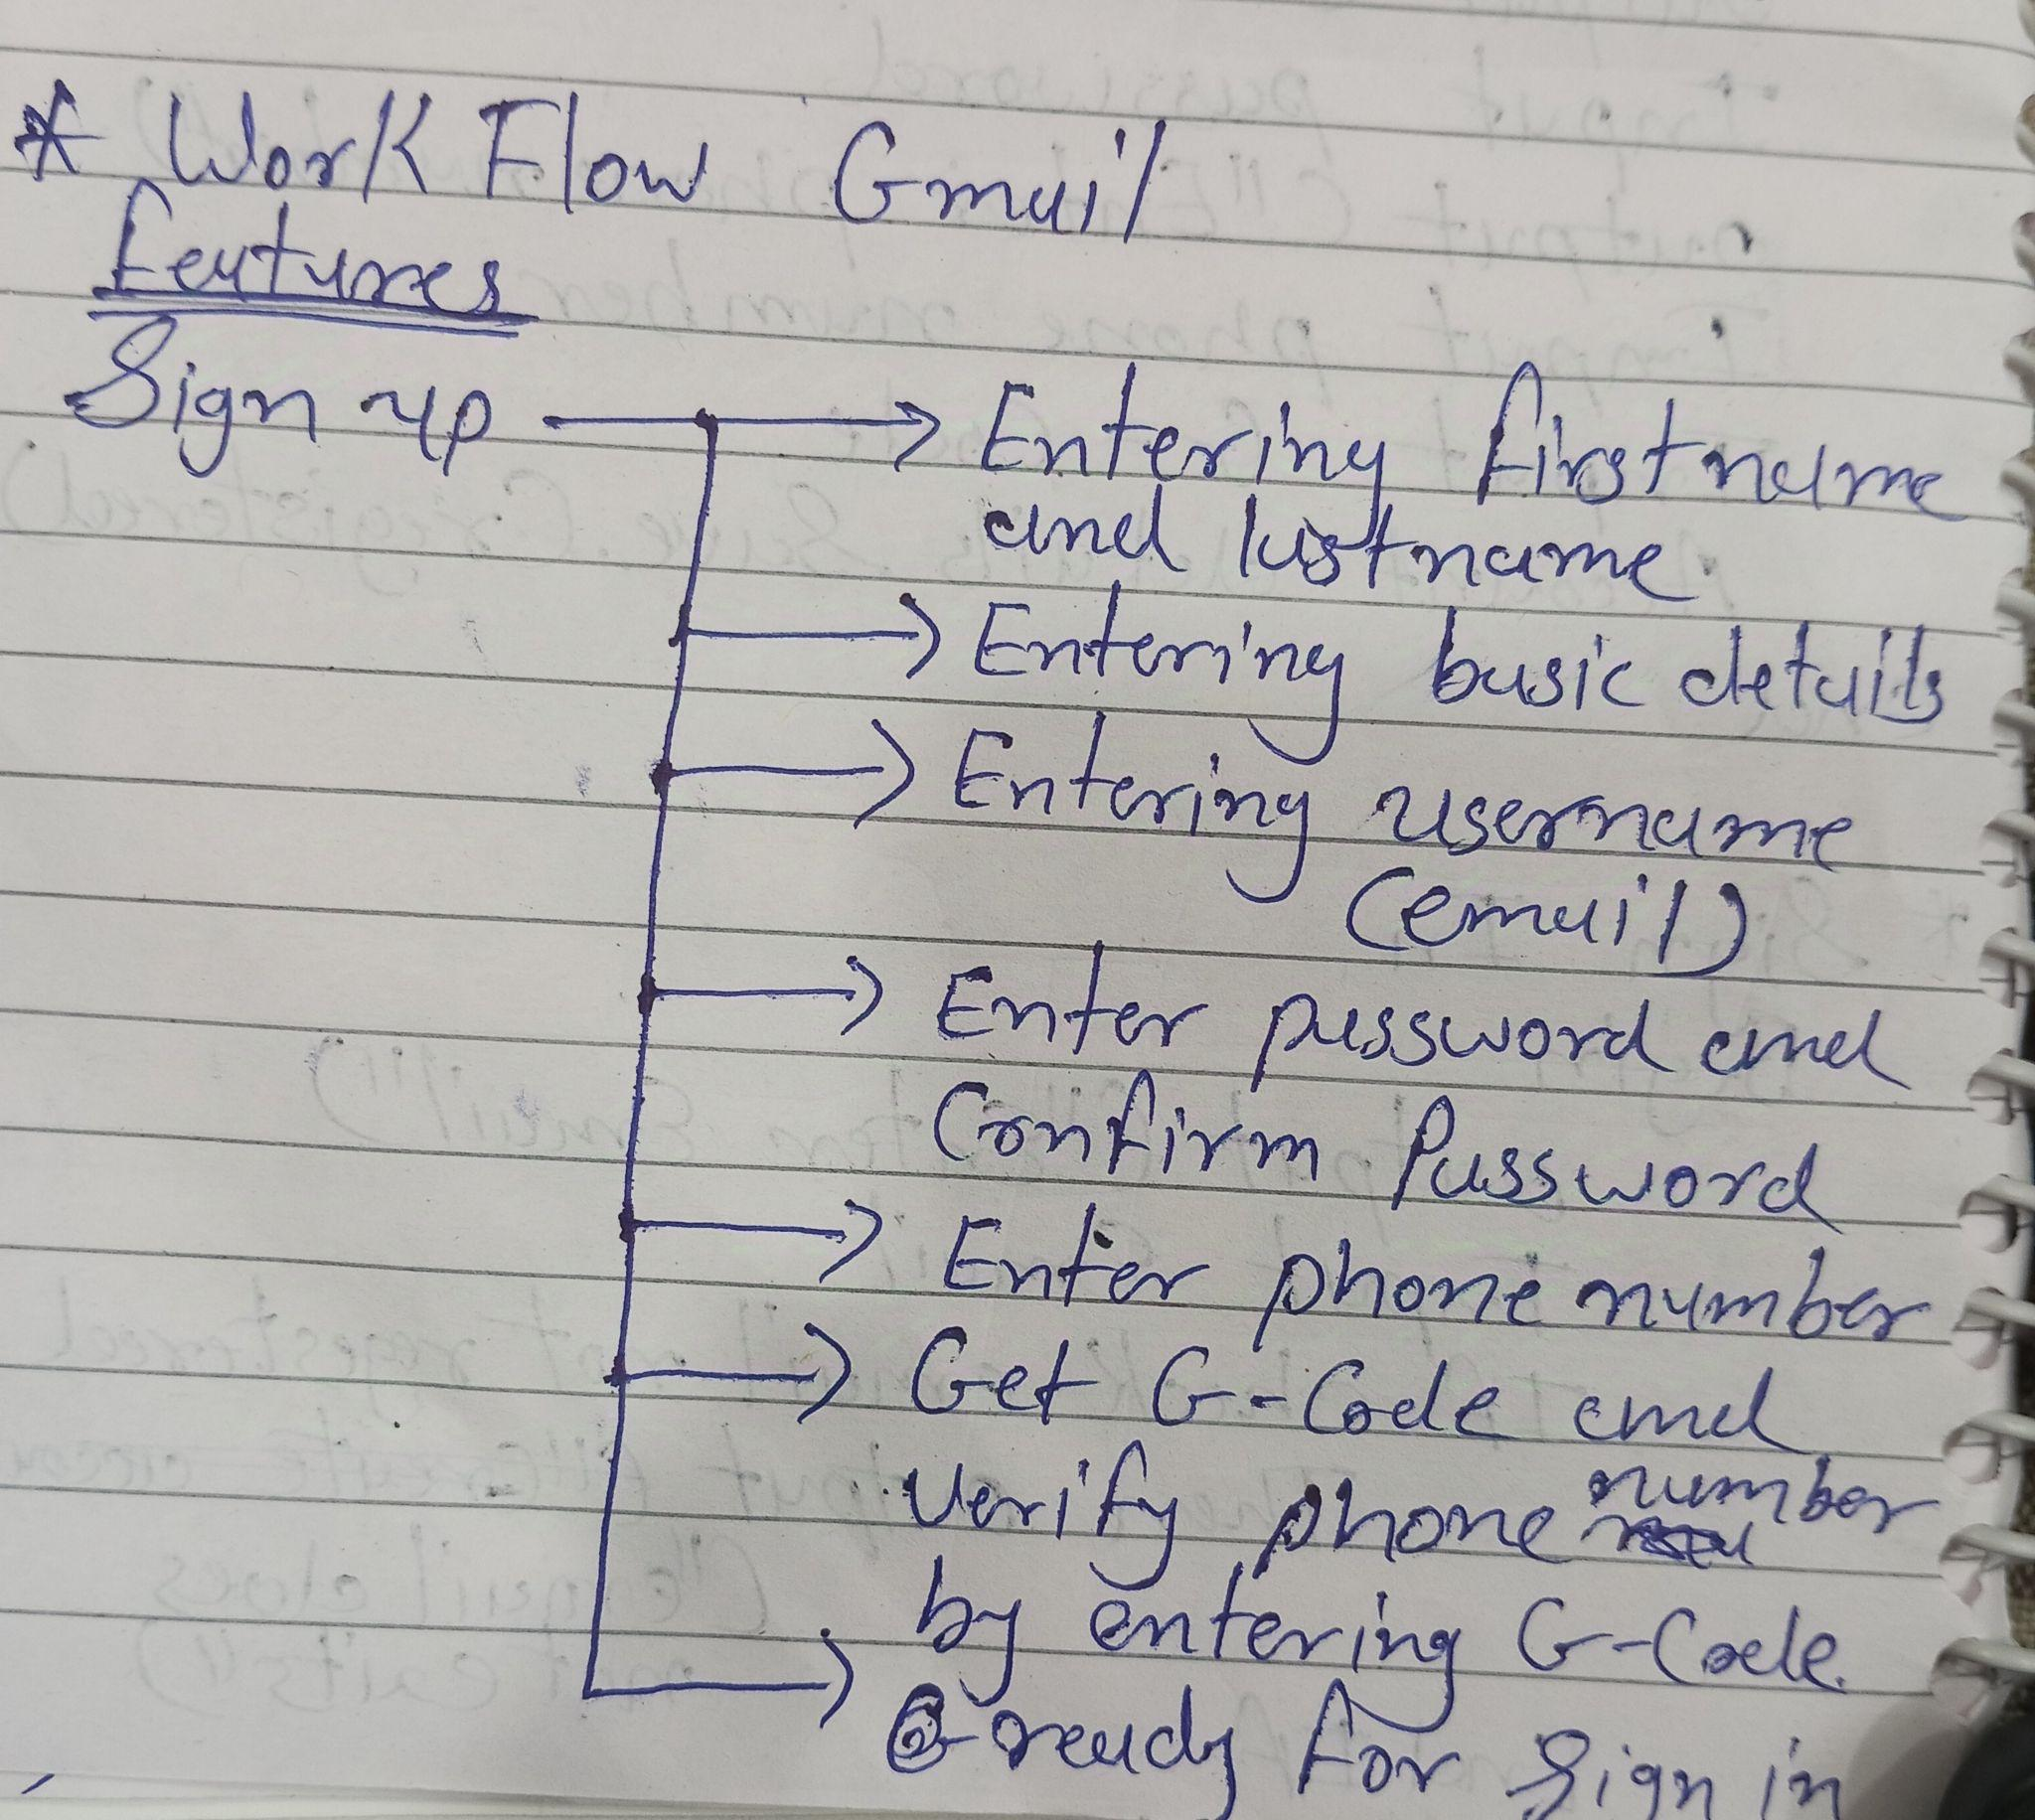 * Work Flow Gmail
Features
Sign up → Entering firstname
and lastname.
→ Entering basic details
→ Entering username
(email)
→ Enter password and
Confirm Password
→ Enter phone number
→ Get G-Code and
verify phone number
by entering G-Code.
→ ready for Sign in